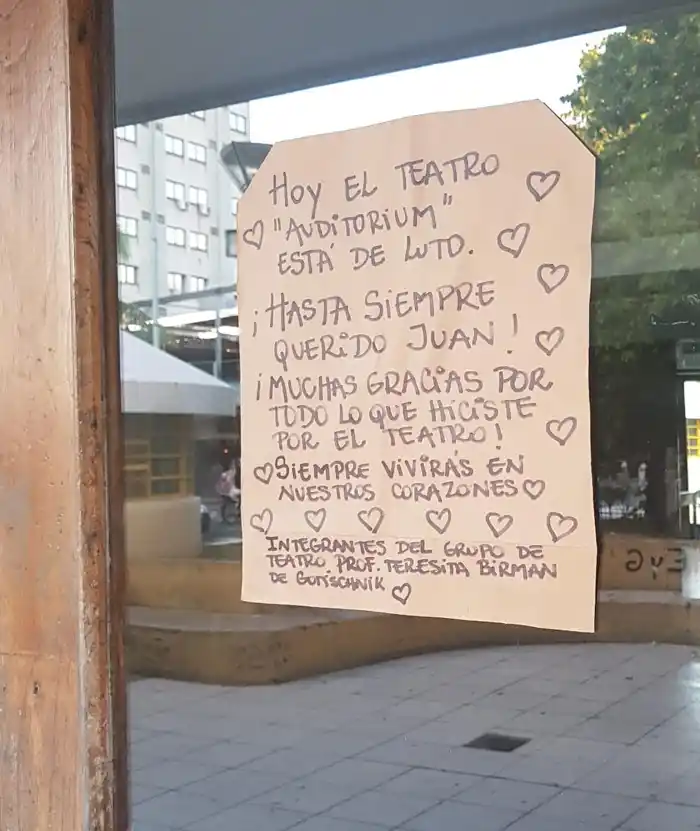 Hoy EL TEATRO
"AUDiTORIUM"
ESTÁ DE LUTO.
¡HASTA SiEMPRE
QUERiDO JUAN!
¡MUCHAS GRACiAS POR
TODO LO QUE HiCiSTE
POR EL TEATRO!
SiEMPRE ViViRÁS EN
NUESTROS CORAZONES
INTEGRANTES DEL GRUPO DE
TEATRO PROF. TERESiTA BIRMAN
DE